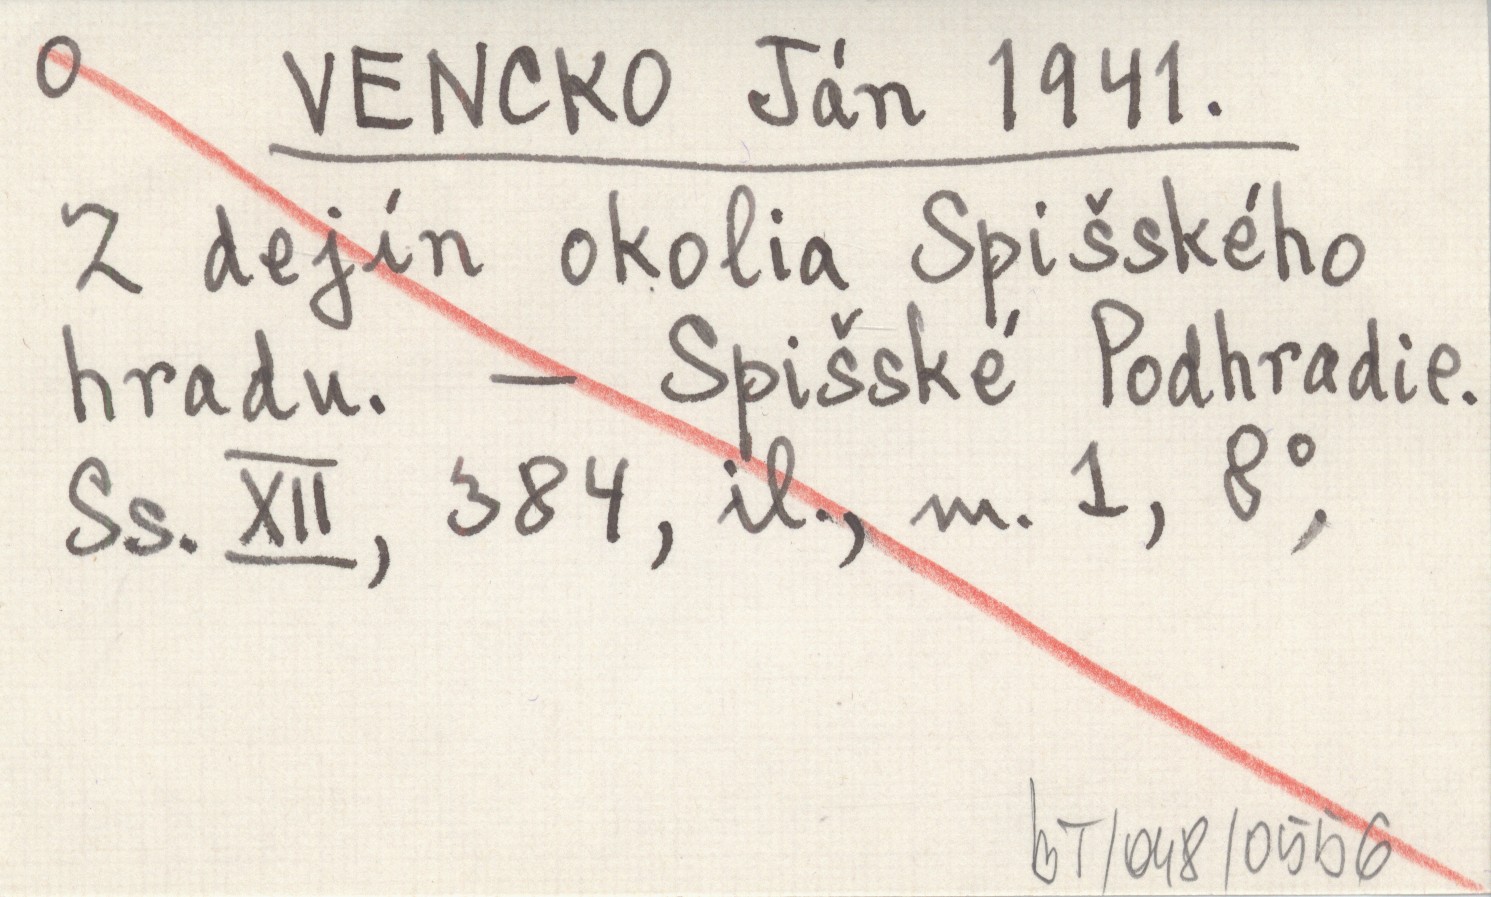 O VENCKO Ján 1941.
Z dejín okolia Spišského
hradu. — Spišské Podhradie.
Ss. XII, 384, il., m. 1, 8°,